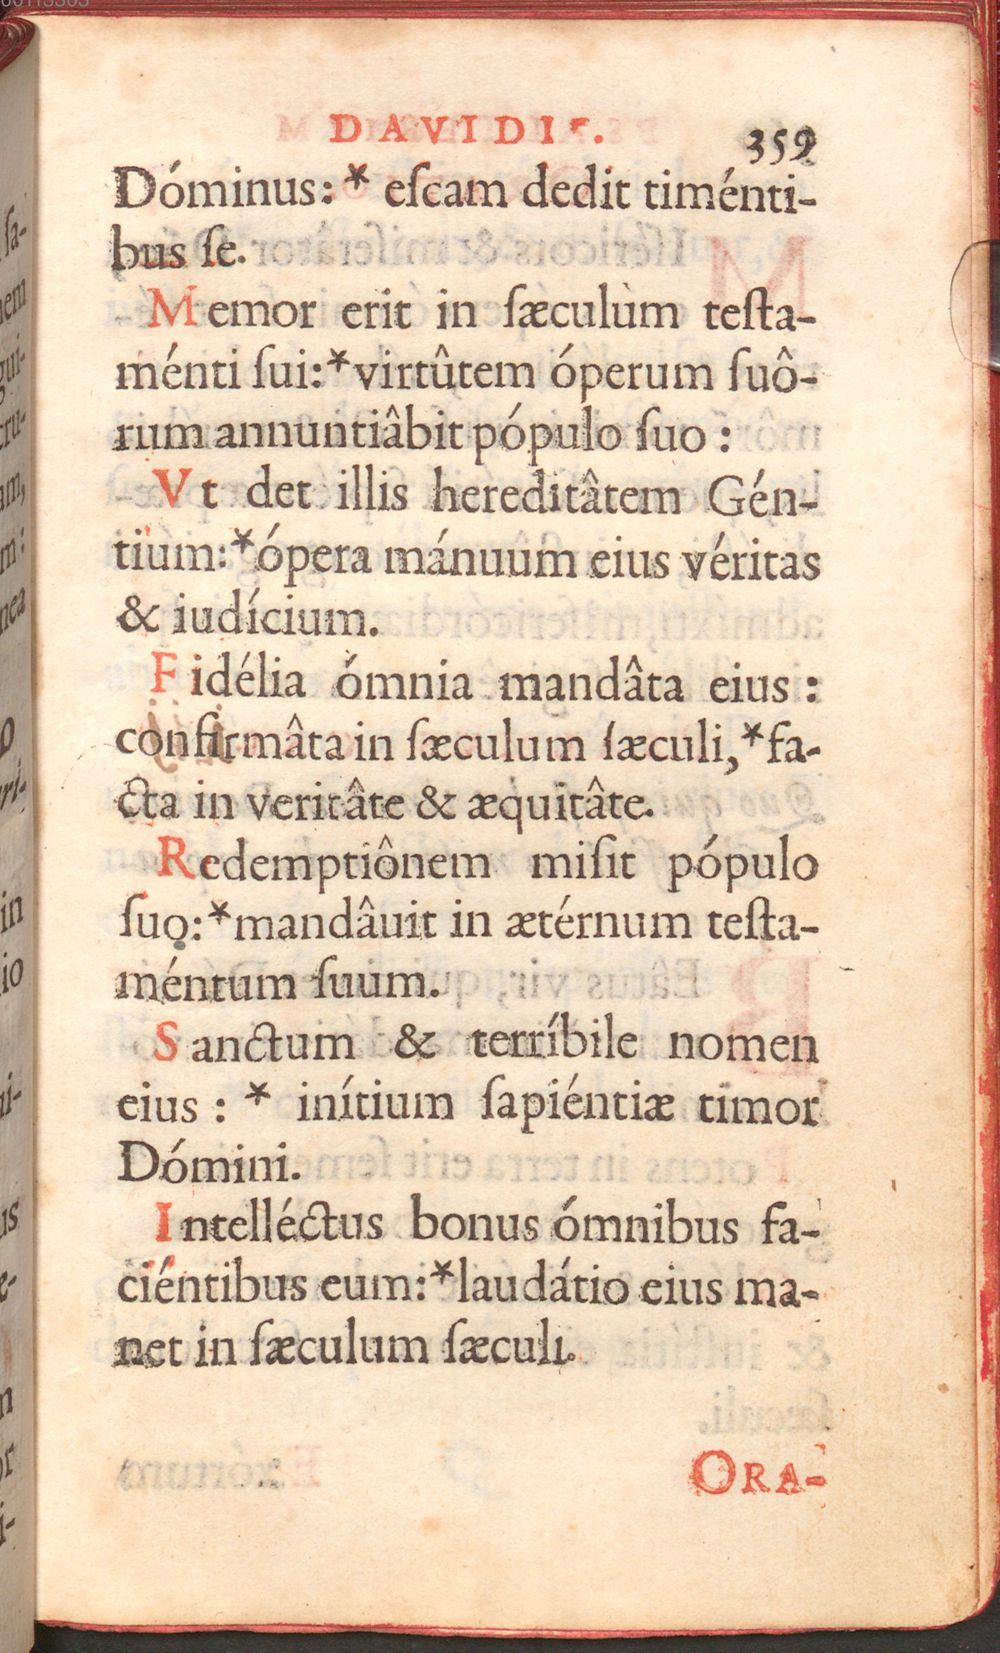 DAVIDIS.
359
Dóminus: * eſcam dedit timénti-
bus ſe.
Memor erit in ſæculum teſta-
ménti ſui:* virtûtem óperum ſuô-
rum annuntiâbit pópulo ſuo :
Vt det illis hereditâtem Gén-
tium:* ópera mánuum eius véritas
& iudícium.
Fidélia ómnia mandâta eius :
confirmâta in ſæculum ſæculi,* fa-
cta in veritâte & æquitâte.
Redemptiônem miſit pópulo
ſuo:* mandâuit in ætérnum teſta-
méntum ſuum.
Sanctum & terríbile nomen
eius : * inítium ſapiéntiæ timor
Dómini.
Intelléctus bonus ómnibus fa-
ciéntibus eum:* laudátio eius ma-
net in ſæculum ſæculi.
ORA-